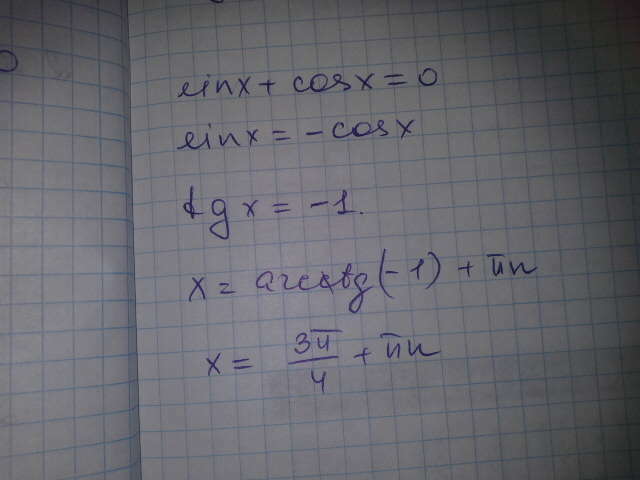 sinx + cosx = 0
sinx = - cosx
tg x = -1.
x = arcctg(-1) + πn
x = 3π/4 + πn